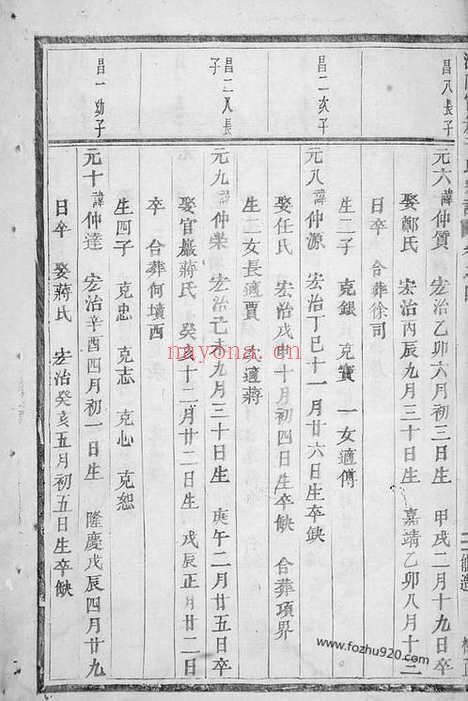 昌八長子
元六 諱仲質 宏治乙卯六月初三日生 甲戌二月十九日卒
娶鄭氏 宏治丙辰九月三十日生 嘉靖乙卯八月十三
日卒 合葬徐司
生二子 克銀 克寶 一女適傅
昌二次子
元八 諱仲源 宏治丁巳十一月廿六日生卒缺
娶任氏 宏治戊午十月初四日生卒缺 合葬項界
生二女長適賈 次適蔣
昌二人長子
元九 諱仲榮 宏治己未九月三十日生 庚午二月廿五日卒
娶官巖蔣氏 癸亥十二月廿二日生 戊辰正月廿二日
卒 合葬何墳西
生四子 克忠 克志 克心 克恕
昌一幼子
元十 諱仲達 宏治辛酉四月初一日生 隆慶戊辰四月廿九
日卒 娶蔣氏 宏治癸亥五月初五日生卒缺
nayona.cn
www.fozhu920.com